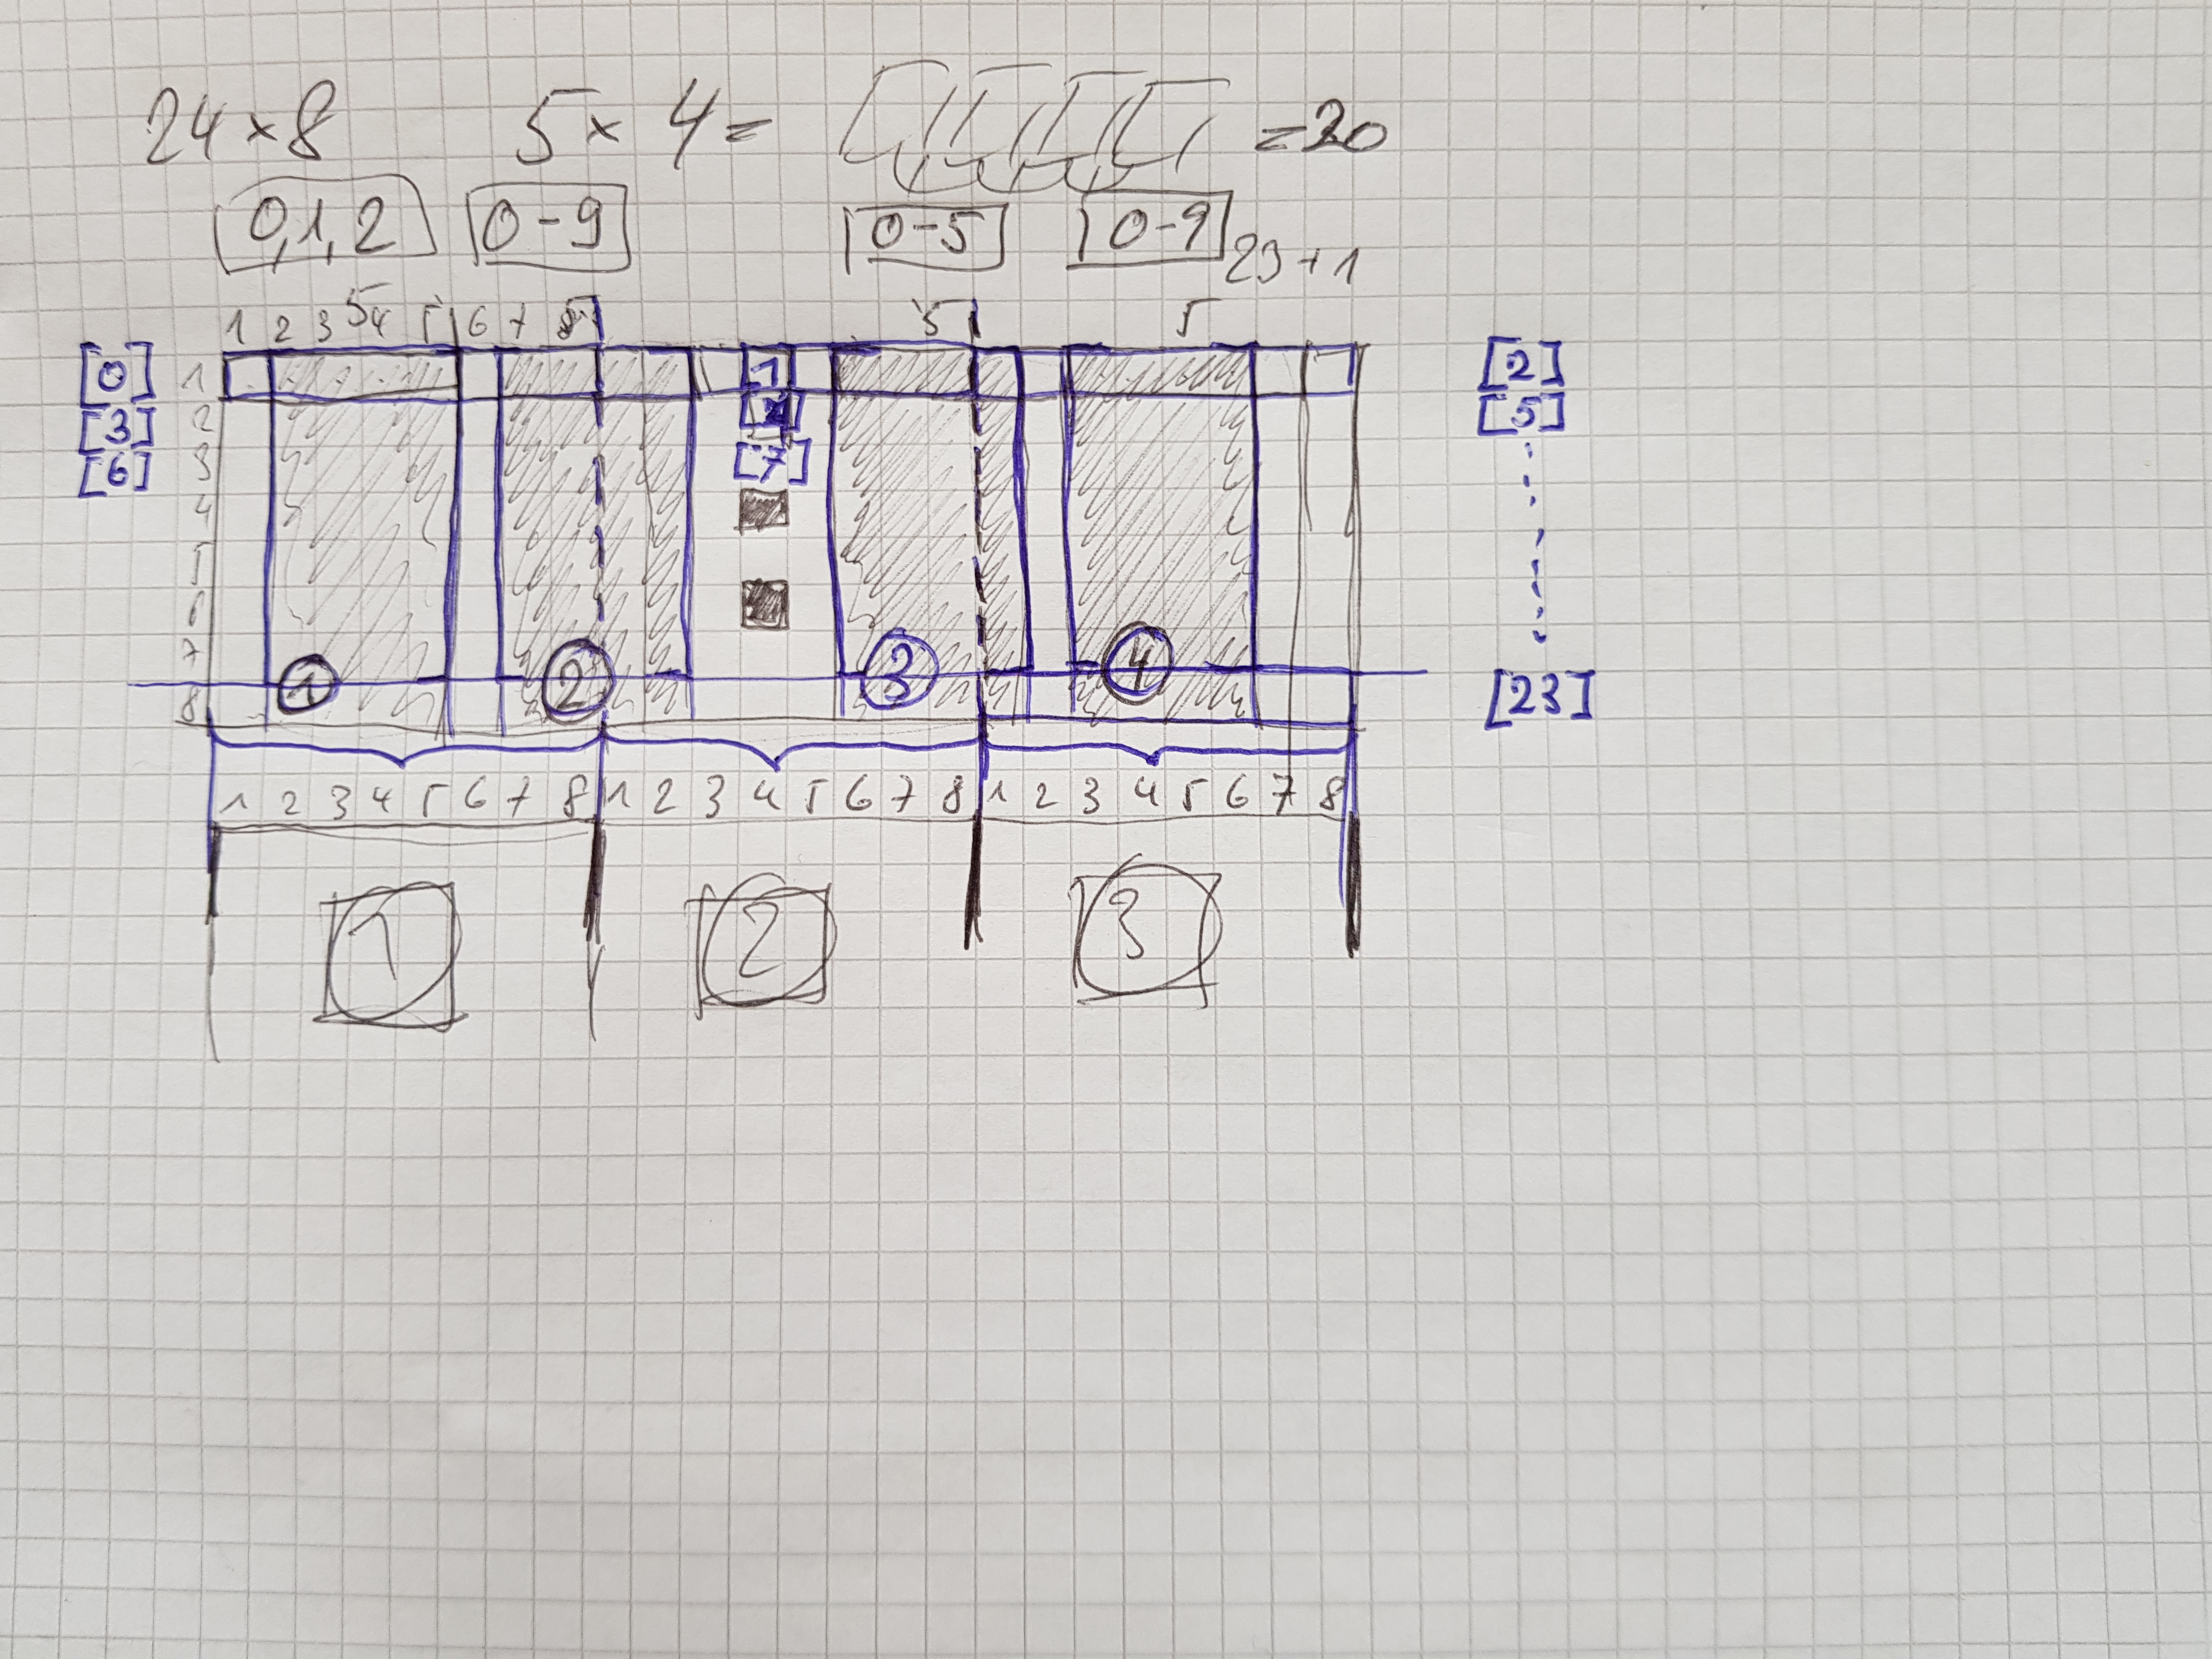 24 × 8 5 × 4 = = 20
0,1,2 0-9 0-5 0-9
23 + 1
1 2 3 4 5 6 7 5 5
[0] 1 1 [2]
[3] 2 [5]
[6] 3 [7]
4
5
6
7 1 2 3 4
8 [23]
1 2 3 4 5 6 7 8 1 2 3 4 5 6 7 8 1 2 3 4 5 6 7 8
1 2 3